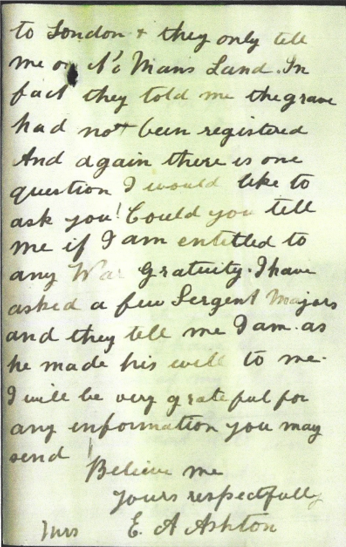 to London & they only tell
me on No Mans Land. In
fact they told me the grave
had not been registered
And again there is one
question I would like to
ask you! Could you tell
me if I am entitled to
any War Gratuity. I have
asked a few Sergent Majors
and they tell me I am. as
he made his will to me.
I will be very grateful for
any information you may
send!
Believe me
Yours respectfully
Mrs E. A Ashton